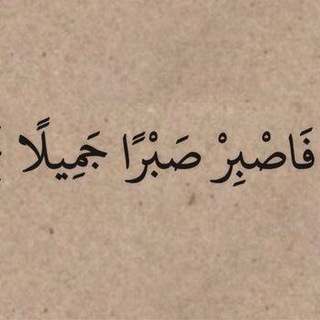 فَاصْبِرْ صَبْرًا جَمِيلًا